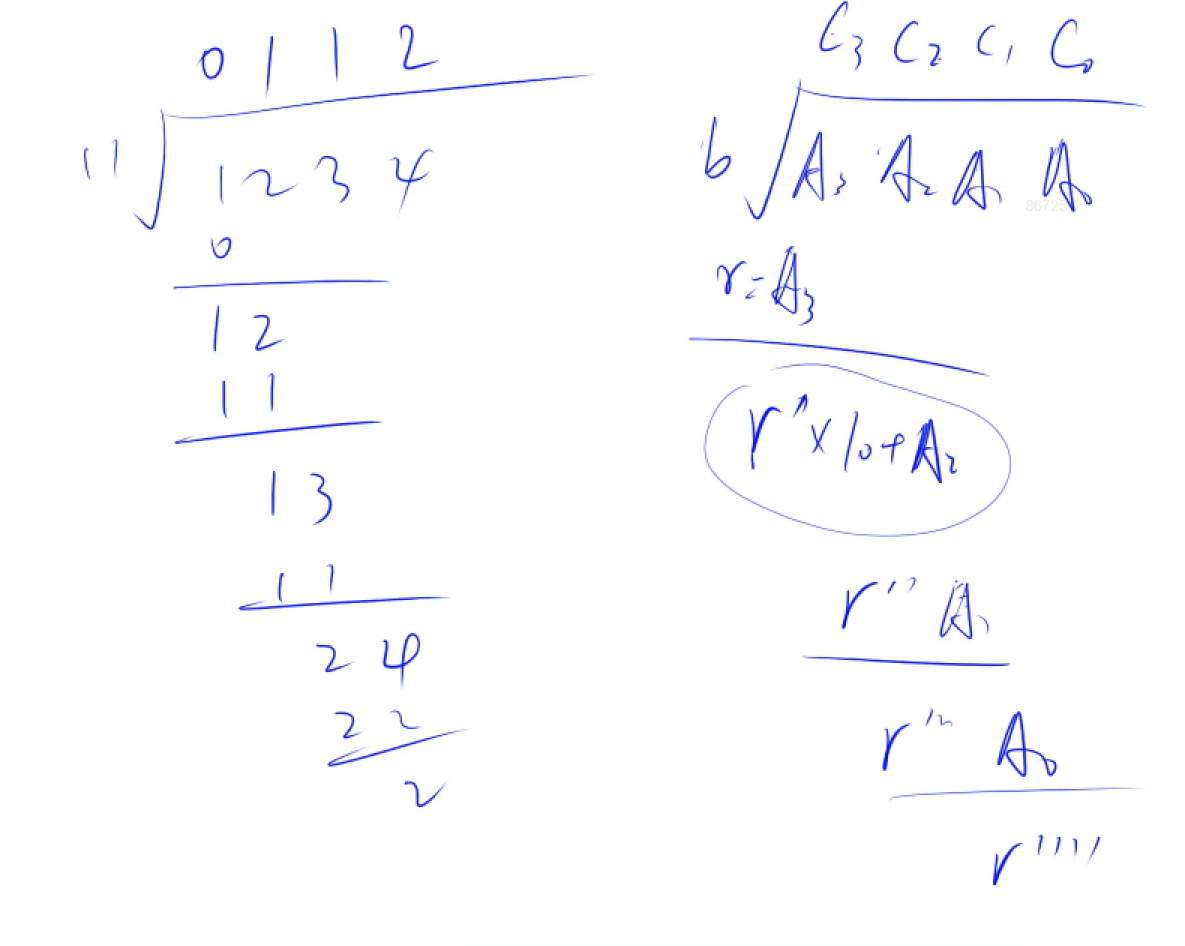 0 1 1 2
11 1 2 3 4
0
1 2
1 1
1 3
1 1
2 4
2 2
2
C₃ C₂ C₁ C₀
b A₃ A₂ A₁ A₀
r = A₃
r' × 10 + A₂
r'' A₁
r''' A₀
r''''